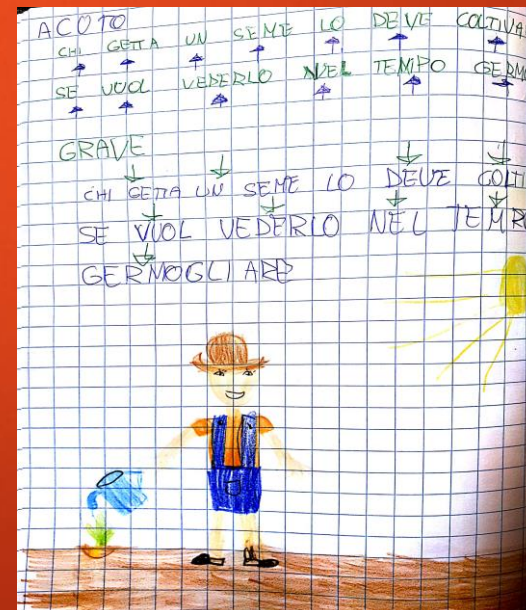 ACOTO
CHI GETTA UN SEME LO DEVE COLTIVA
SE VUOL VEDERLO NEL TEMPO GERMO
GRAVE
CHI GETTA UN SEME LO DEVE COLTI
SE VUOL VEDERLO NEL TEMPO
GERMOGLIARE